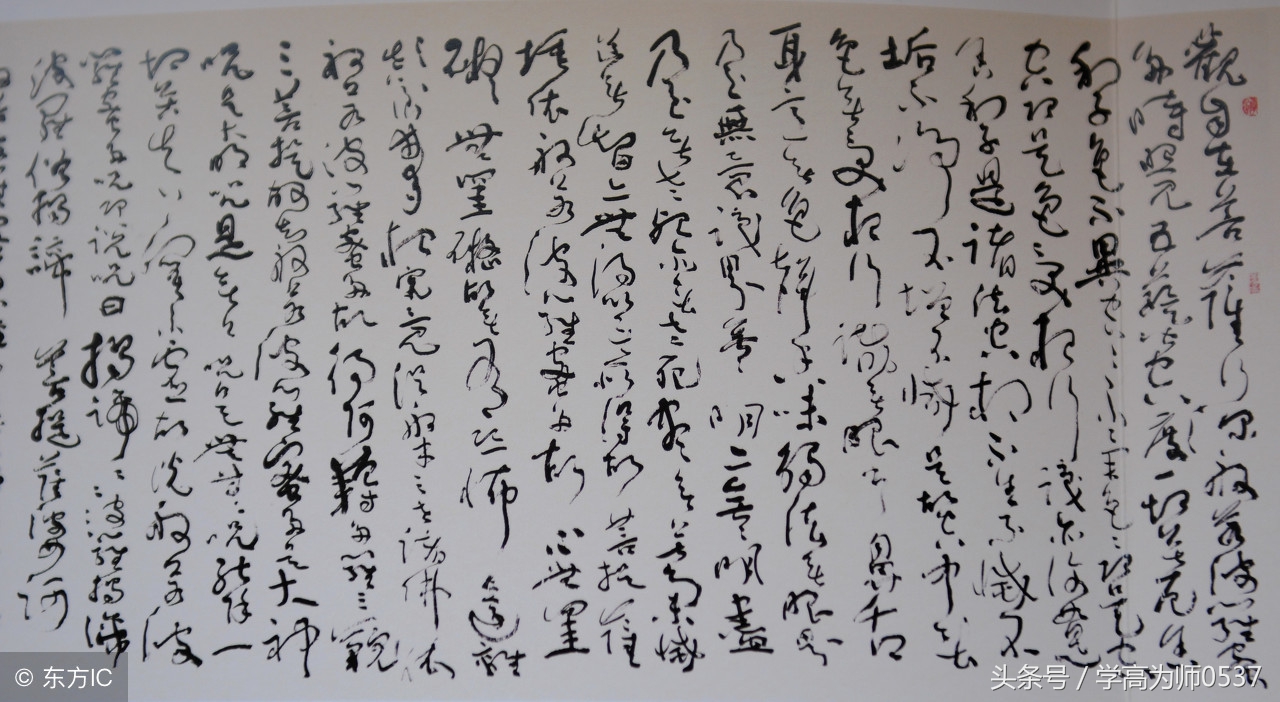 觀自在菩薩行深般若波羅蜜
多時照見五蘊皆空度一切苦厄舍
利子色不異空空不異色色即是空
空即是色受想行識亦復如是
舍利子是諸法空相不生不滅不
垢不淨不增不減是故空中無
色無受想行識無眼耳鼻舌
身意無色聲香味觸法無眼界
乃至無意識界無無明亦無無明盡
乃至無老死亦無老死盡無苦集滅
道無智亦無得以無所得故菩提薩
埵依般若波羅蜜多故心無罣
礙無罣礙故無有恐怖遠離
顛倒夢想究竟涅槃三世諸佛依
般若波羅蜜多故得阿耨多羅三藐
三菩提故知般若波羅蜜多是大神
咒是大明咒是無上咒是無等等咒能除一
切苦真實不虛故說般若波
羅蜜多咒即說咒曰揭諦揭諦波羅揭諦
波羅僧揭諦菩提薩婆訶
© 东方IC
头条号 / 学高为师0537